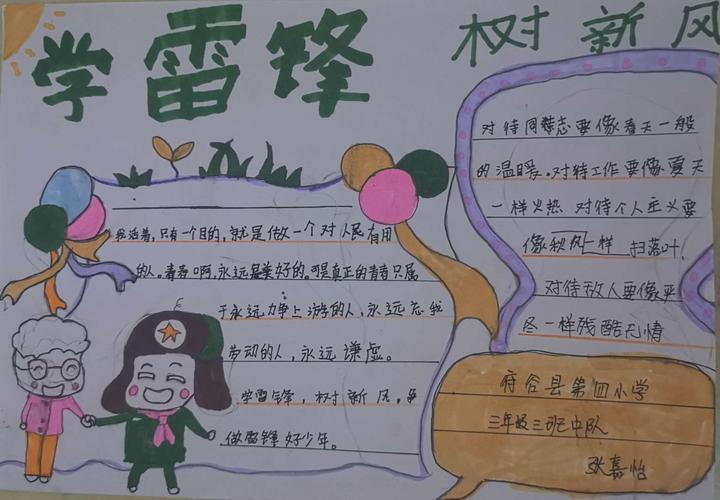 学雷锋 树新风
我活着,只有一个目的,就是做一个对人民有用
的人。青春啊,永远是美好的。可是真正的青春只属
于永远力争上游的人,永远忘我
劳动的人,永远谦虚。
学雷锋,树新风,争
做雷锋好少年。
对待同志要像春天一般
的温暖。对待工作要像夏天
一样火热 对待个人主义要
像秋风一样 扫落叶,
对待敌人要像严
冬一样残酷无情
府谷县第四小学
三年级三班中队
张嘉怡